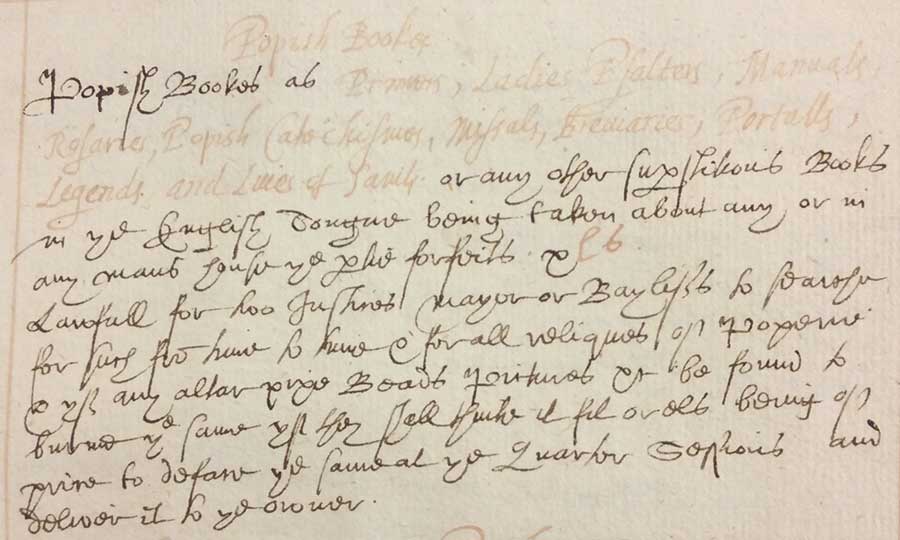 Popish Bookes
Popish Bookes as Primers, Ladies Psalters, Manuals,
Rosaries, Popish Catechismes, Missals, Breviaries, Portalls,
Legends, and Lives of Saints. or any other supstitious Books
in ye English Tongue being taken about any or in
any mans house ye ptie forfeits
Lawfull for two Justices Mayor or Bayliffs to searche
for such frō time to time & for all reliques off Poperie
& yff any altar pixe Beads Pictures &c be found to
burne ye same yff they shall thinke it fit or els being off
price to deface ye same at ye Quarter Sessions and
deliver it to ye owner.